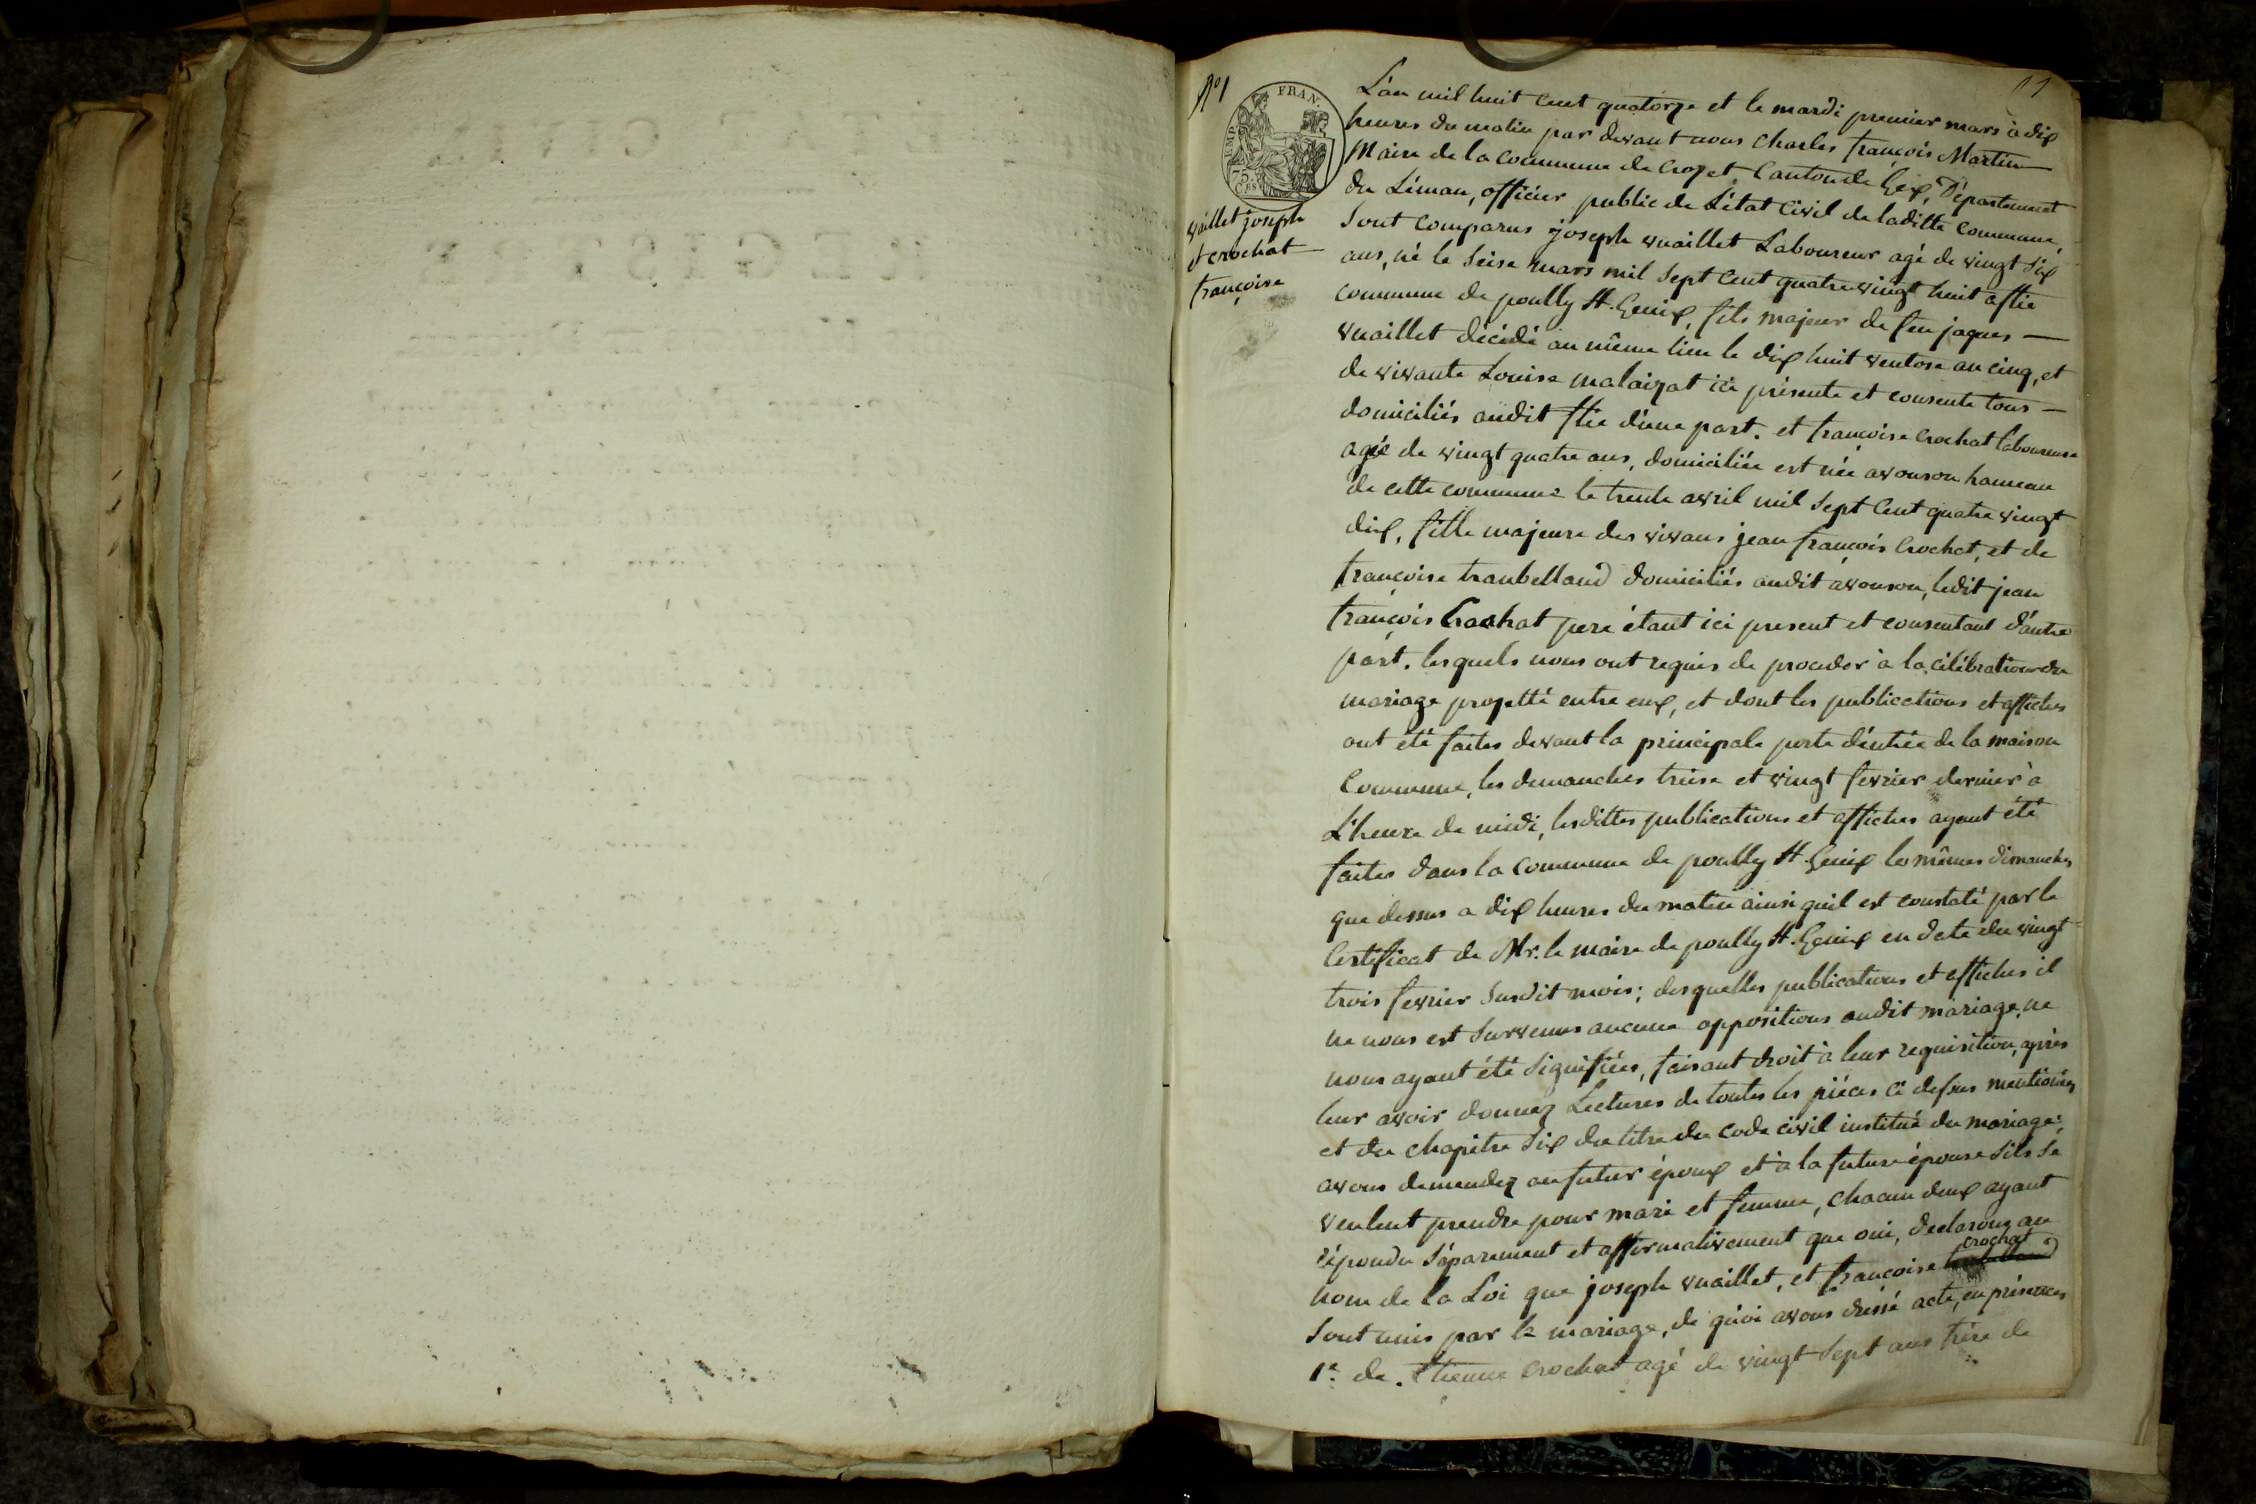 N°1
EMP. FRAN.
75. CES
vuillet joseph
et crochat
françoise
L'an mil huit cent quatorze et le mardi premier mars à dix
heures du matin par devant nous Charles françois Martin
Maire de la commune de Crozet Canton de Gex, Département
du Léman, officier public de L'état Civil de laditte Commune,
Sont comparus joseph vuaillet Laboureur agé de vingt Six
ans, né le Seise mars mil Sept Cent quatre vingt huit a flie
commune de poully St. Genix, fils majeur de feu jaques
vuaillet décédé au même lieu le dix huit ventose an cinq, et
de vivante Louise malaizat ici présente et consente tous
domiciliés audit flie d'une part. et françoise Crochat laboureuse
agée de vingt quatre ans, domiciliée est née avouson hameau
de cette commune le trente avril mil Sept Cent quatre vingt
dix, fille majeure des vivans jean françois Crochet, et de
françoise traubelland domiciliés audit avouson, ledit jean
françois Crochat pere étant ici present et consentant d'autre
part. lesquels nous ont requis de proceder à la célébration du
mariage projetté entre eux, et dont les publications et affiches
ont été faites devant la principale porte d'entrée de la maison
Commune, les dimanches treise et vingt fevrier dernier à
L'heure de midi, lesdittes publications et affiches ayant été
faites dans la Commune de poully St. Genix les mêmes dimanches
que dessus a dix heures du matin ainsi quil est constaté par le
Certificat de Mr. le maire de poully St. Genix en date du vingt=
trois fevrier Susdit mois; desquelles publications et affiches il
ne nous est Survenus aucune oppositions audit mariage, ne
nous ayant été Signifiées, faisant droit à leur requisition, après
leur avoir donnez Lectures de toutes les piéces ci dessus mentionées
et du Chapitre Six du titre du Code civil institué du mariage;
avons demendez au futur époux et à la future épouse Sils Se
veulent prendre pour mari et femme, Chacun deux ayant
répondu Séparement et affirmativement que oui, declarons au
nom de la Loi que joseph vuaillet, et françoise crochat
Sont unis par le mariage, de quoi avons dressé acte, en présences
1°. de Etienne Crochat agé de vingt Sept ans frère de